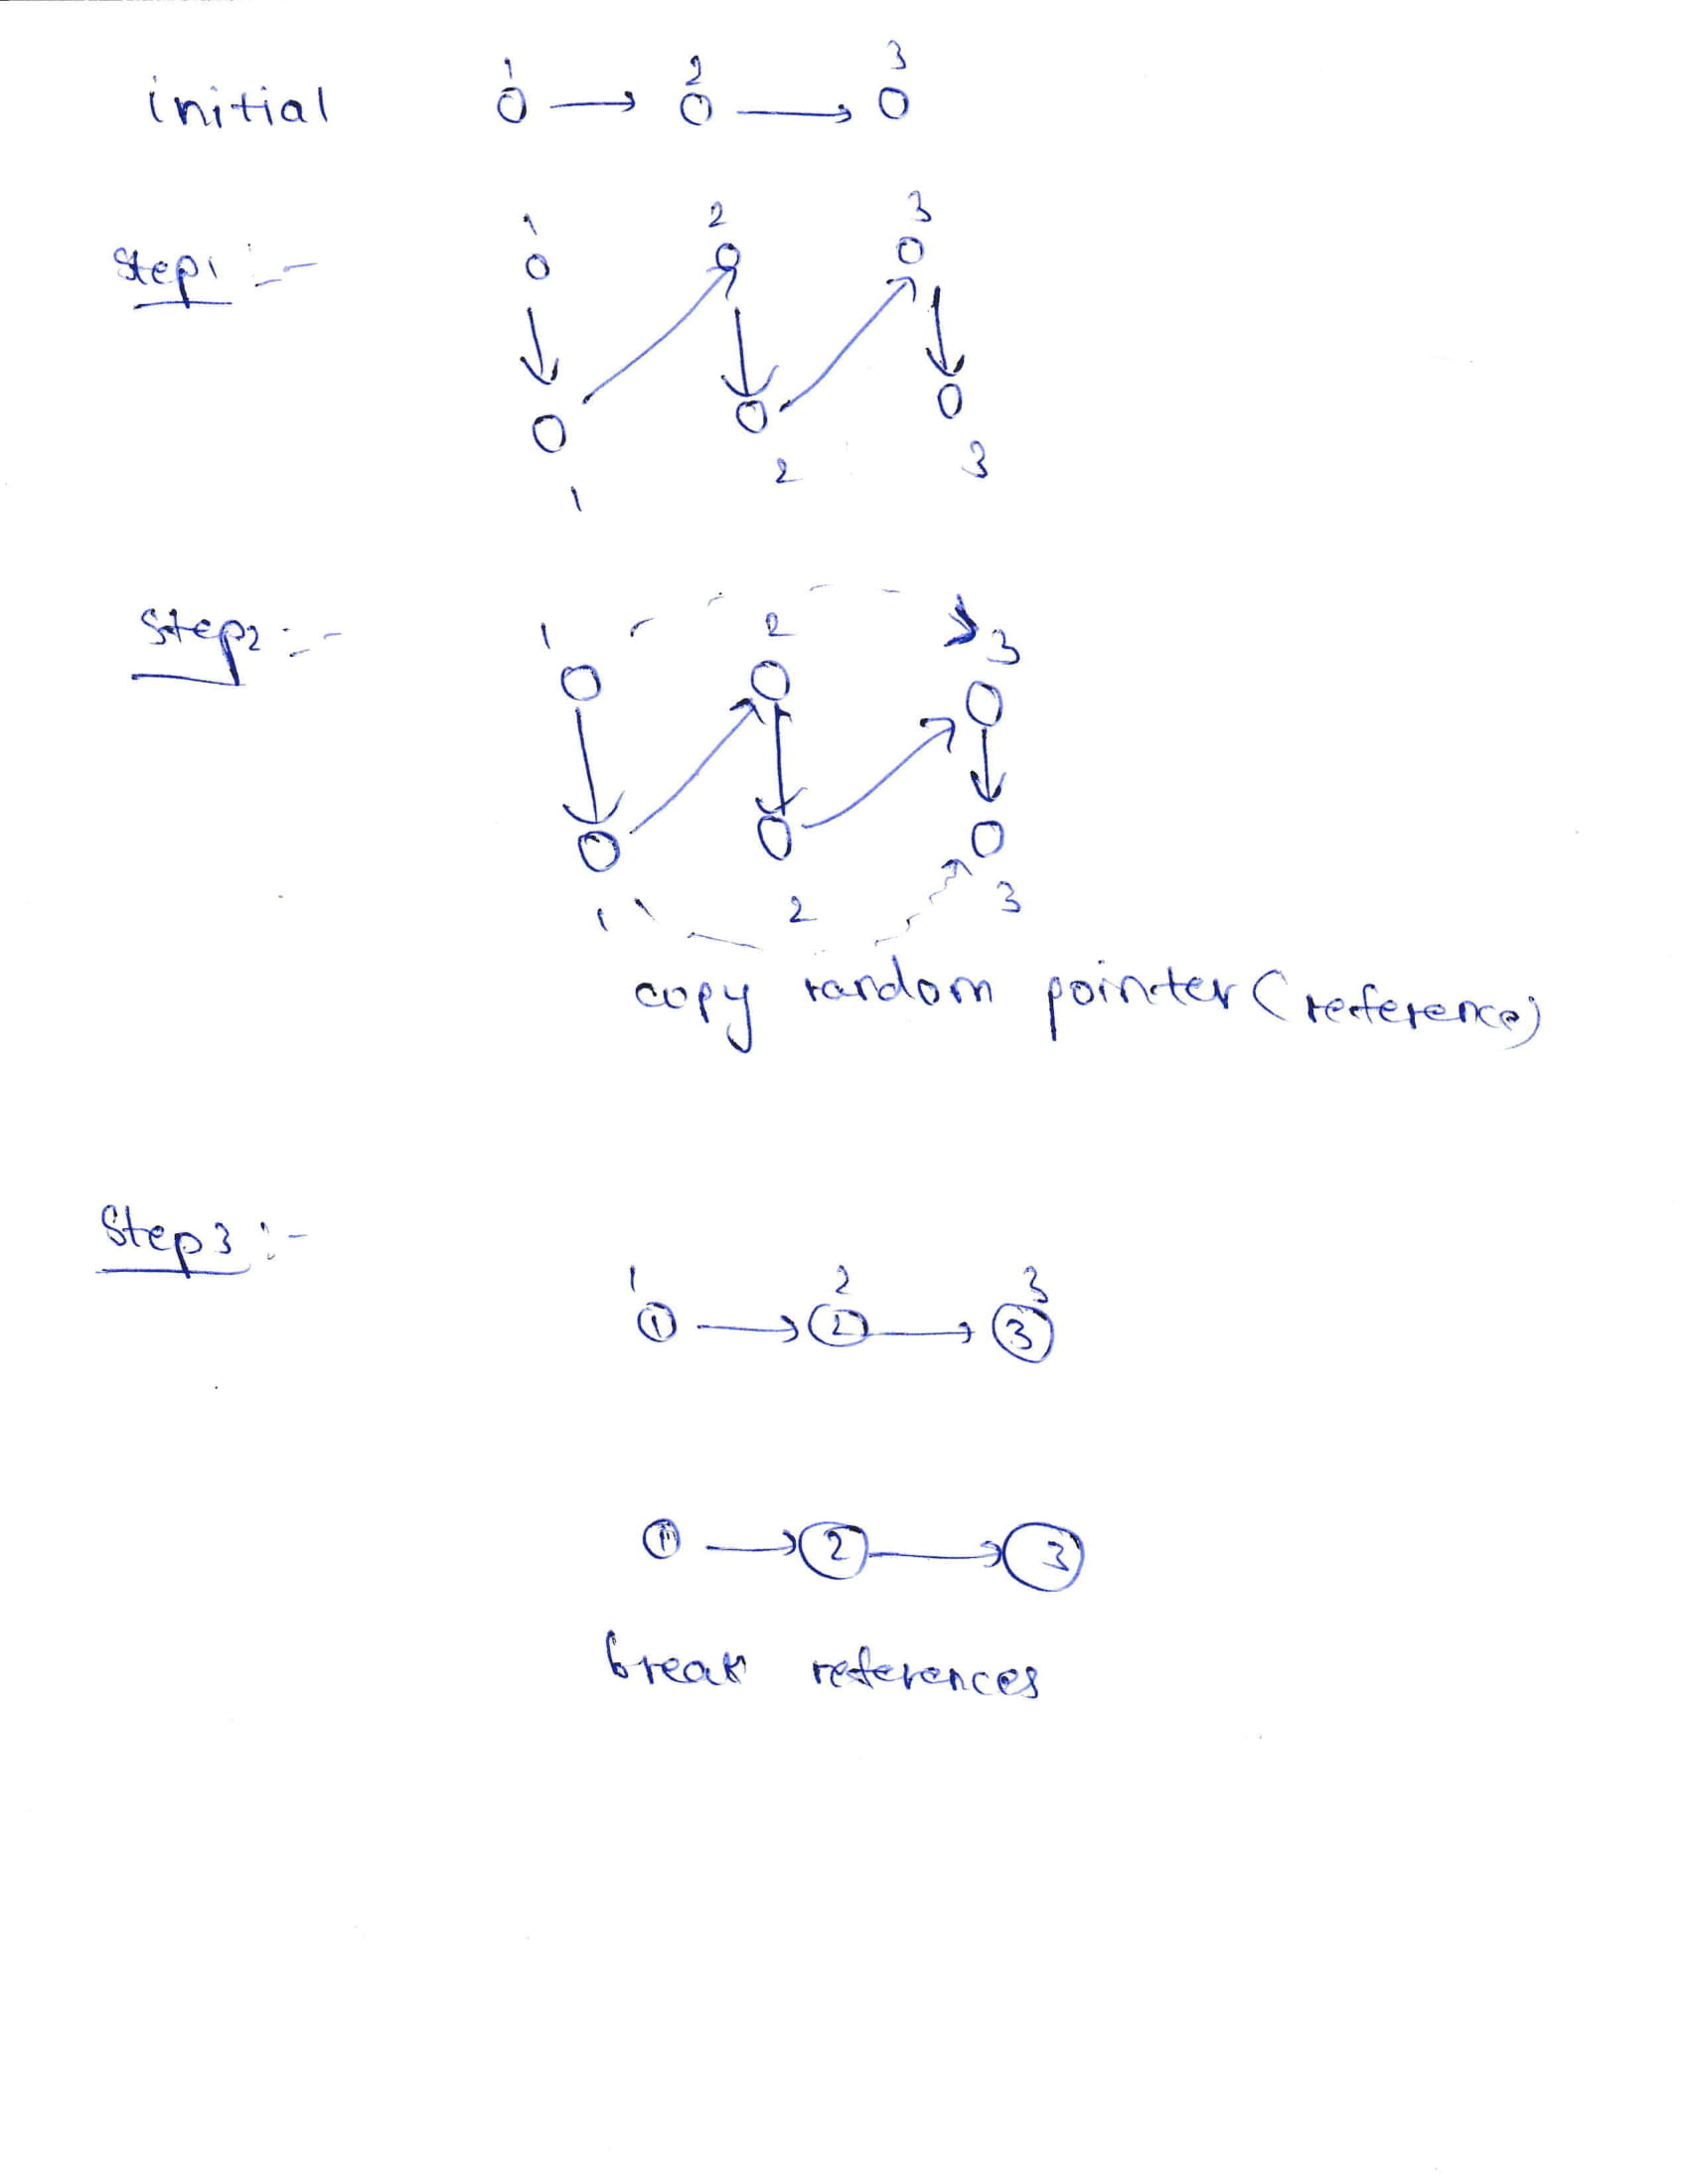 initial
1 2 3
1 2 3
Step1 :-
1 2 3
Step2 :-
1 2 3
1 2 3
copy random pointer (reference)
Step3 :-
1 2 3
1 2 3
1 2 3
break references